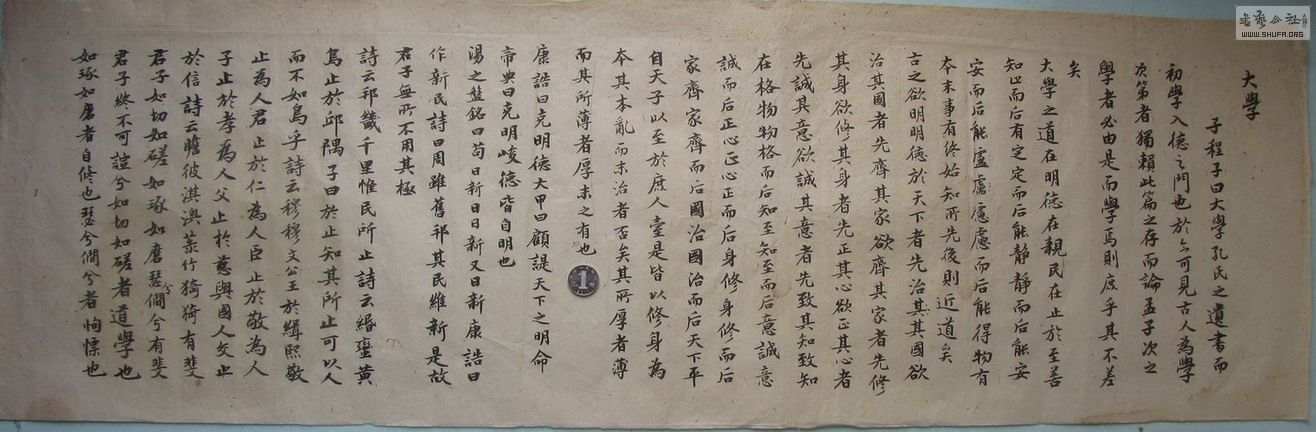 大學
子程子曰大學孔氏之遺書而
初學入德之門也於今可見古人為學
次第者獨賴此篇之存而論孟子次之
學者必由是而學焉則庶乎其不差
矣
大學之道在明明德在親民在止於至善
知止而后有定定而后能静静而后能安
安而后能盧慮慮慮而后能得物有
夲末事有终始知所先後則近道矣
古之欲明明德於天下者先治其國欲
治其國者先齊其家欲齊其家者先修
其身欲修其身者先正其心欲正其心者
先誠其意欲誠其意者先致其知致知
在格物物格而后知至知至而后意誠意
誠而后正心正心正而后身修身修而后
家齊家齊而后國治國治而后天下平
自天子以至於庶人壹是皆以修身為
夲其本亂而末治者否矣其所厚者薄
而其所薄者厚未之有也
康誥曰克明德大甲曰顧諟天下之明命
帝典曰克明峻德皆自明也
湯之盤銘曰茍日新日日新又日新康誥曰
作新民詩曰周雖舊邦其民維新是故
君子無所不用其極
詩云邦畿千里惟民所止詩云緡蠻黄
鳥止於邱隅子曰於止知其所止可以人
而不如鳥乎詩云穆穆文公王於緝熙敬
止為人君止於仁為人臣止於敬為人
子止於孝為人父止於慈與國人交止
於信詩云瞻彼淇澳菉竹猗猗有斐
君子如切如磋如琢如磨瑟兮僩兮有斐
君子终不可諠兮如切如磋者道學也
如琢如磨者自修也瑟兮僩兮者恂慄也
1
書藝公社
WWW.SHUFA.ORG